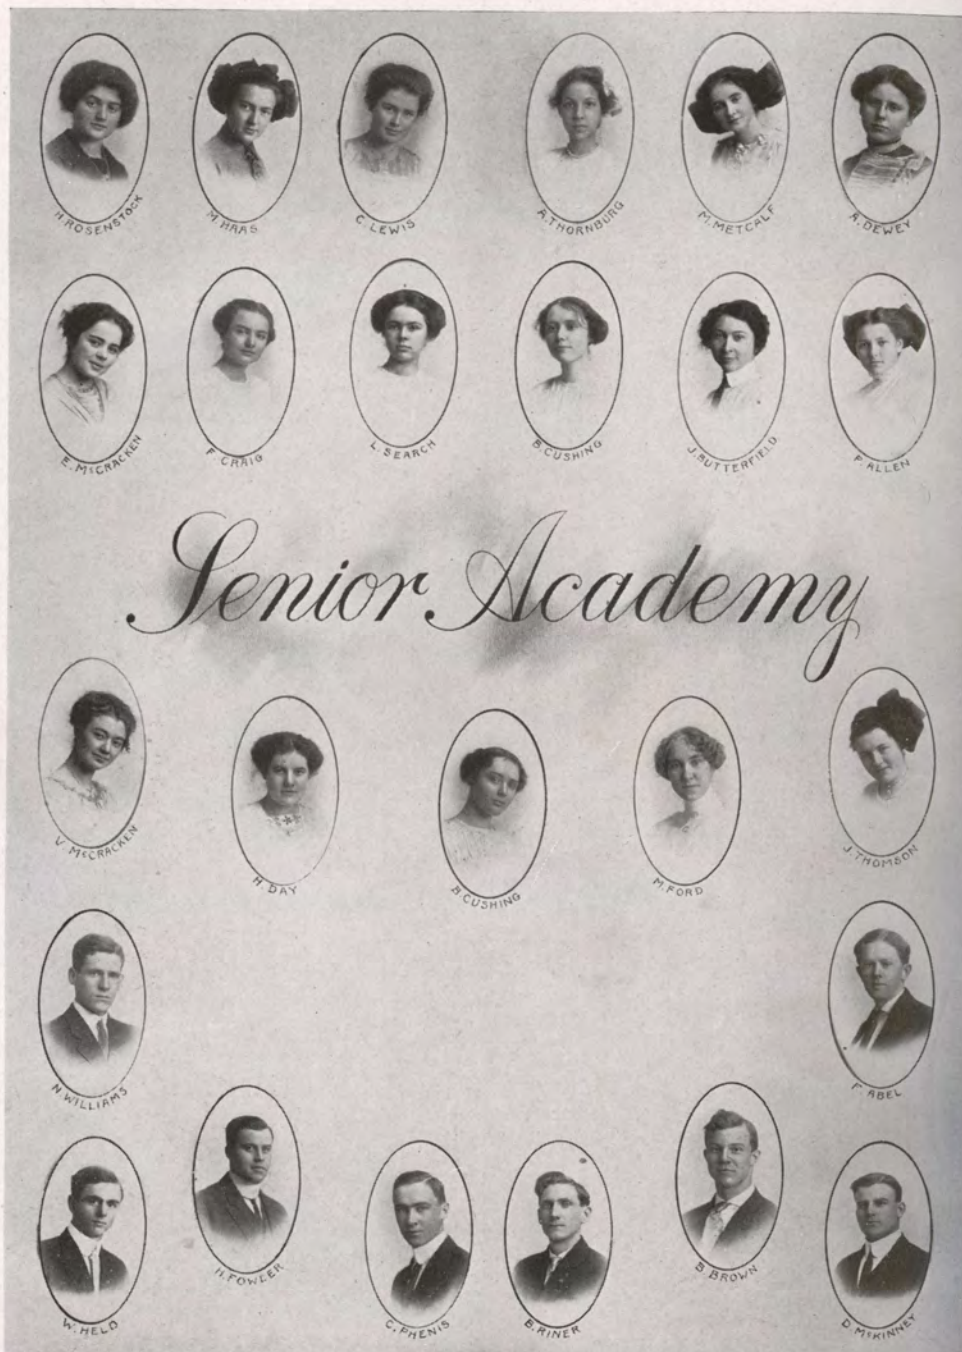 H. ROSENSTOCK
M. HAAS
C. LEWIS
A. THORNBURG
M. METCALF
A. DEWEY
E. McCRACKEN
F. CRAIG
L. SEARCH
B. CUSHING
J. BUTTERFIELD
P. ALLEN
Senior Academy
V. McCRACKEN
H. DAY
B. CUSHING
M. FORD
J. THOMSON
N. WILLIAMS
F. ABEL
W. HELD
H. FOWLER
C. PHENIS
B. RINER
B. BROWN
D. McKINNEY